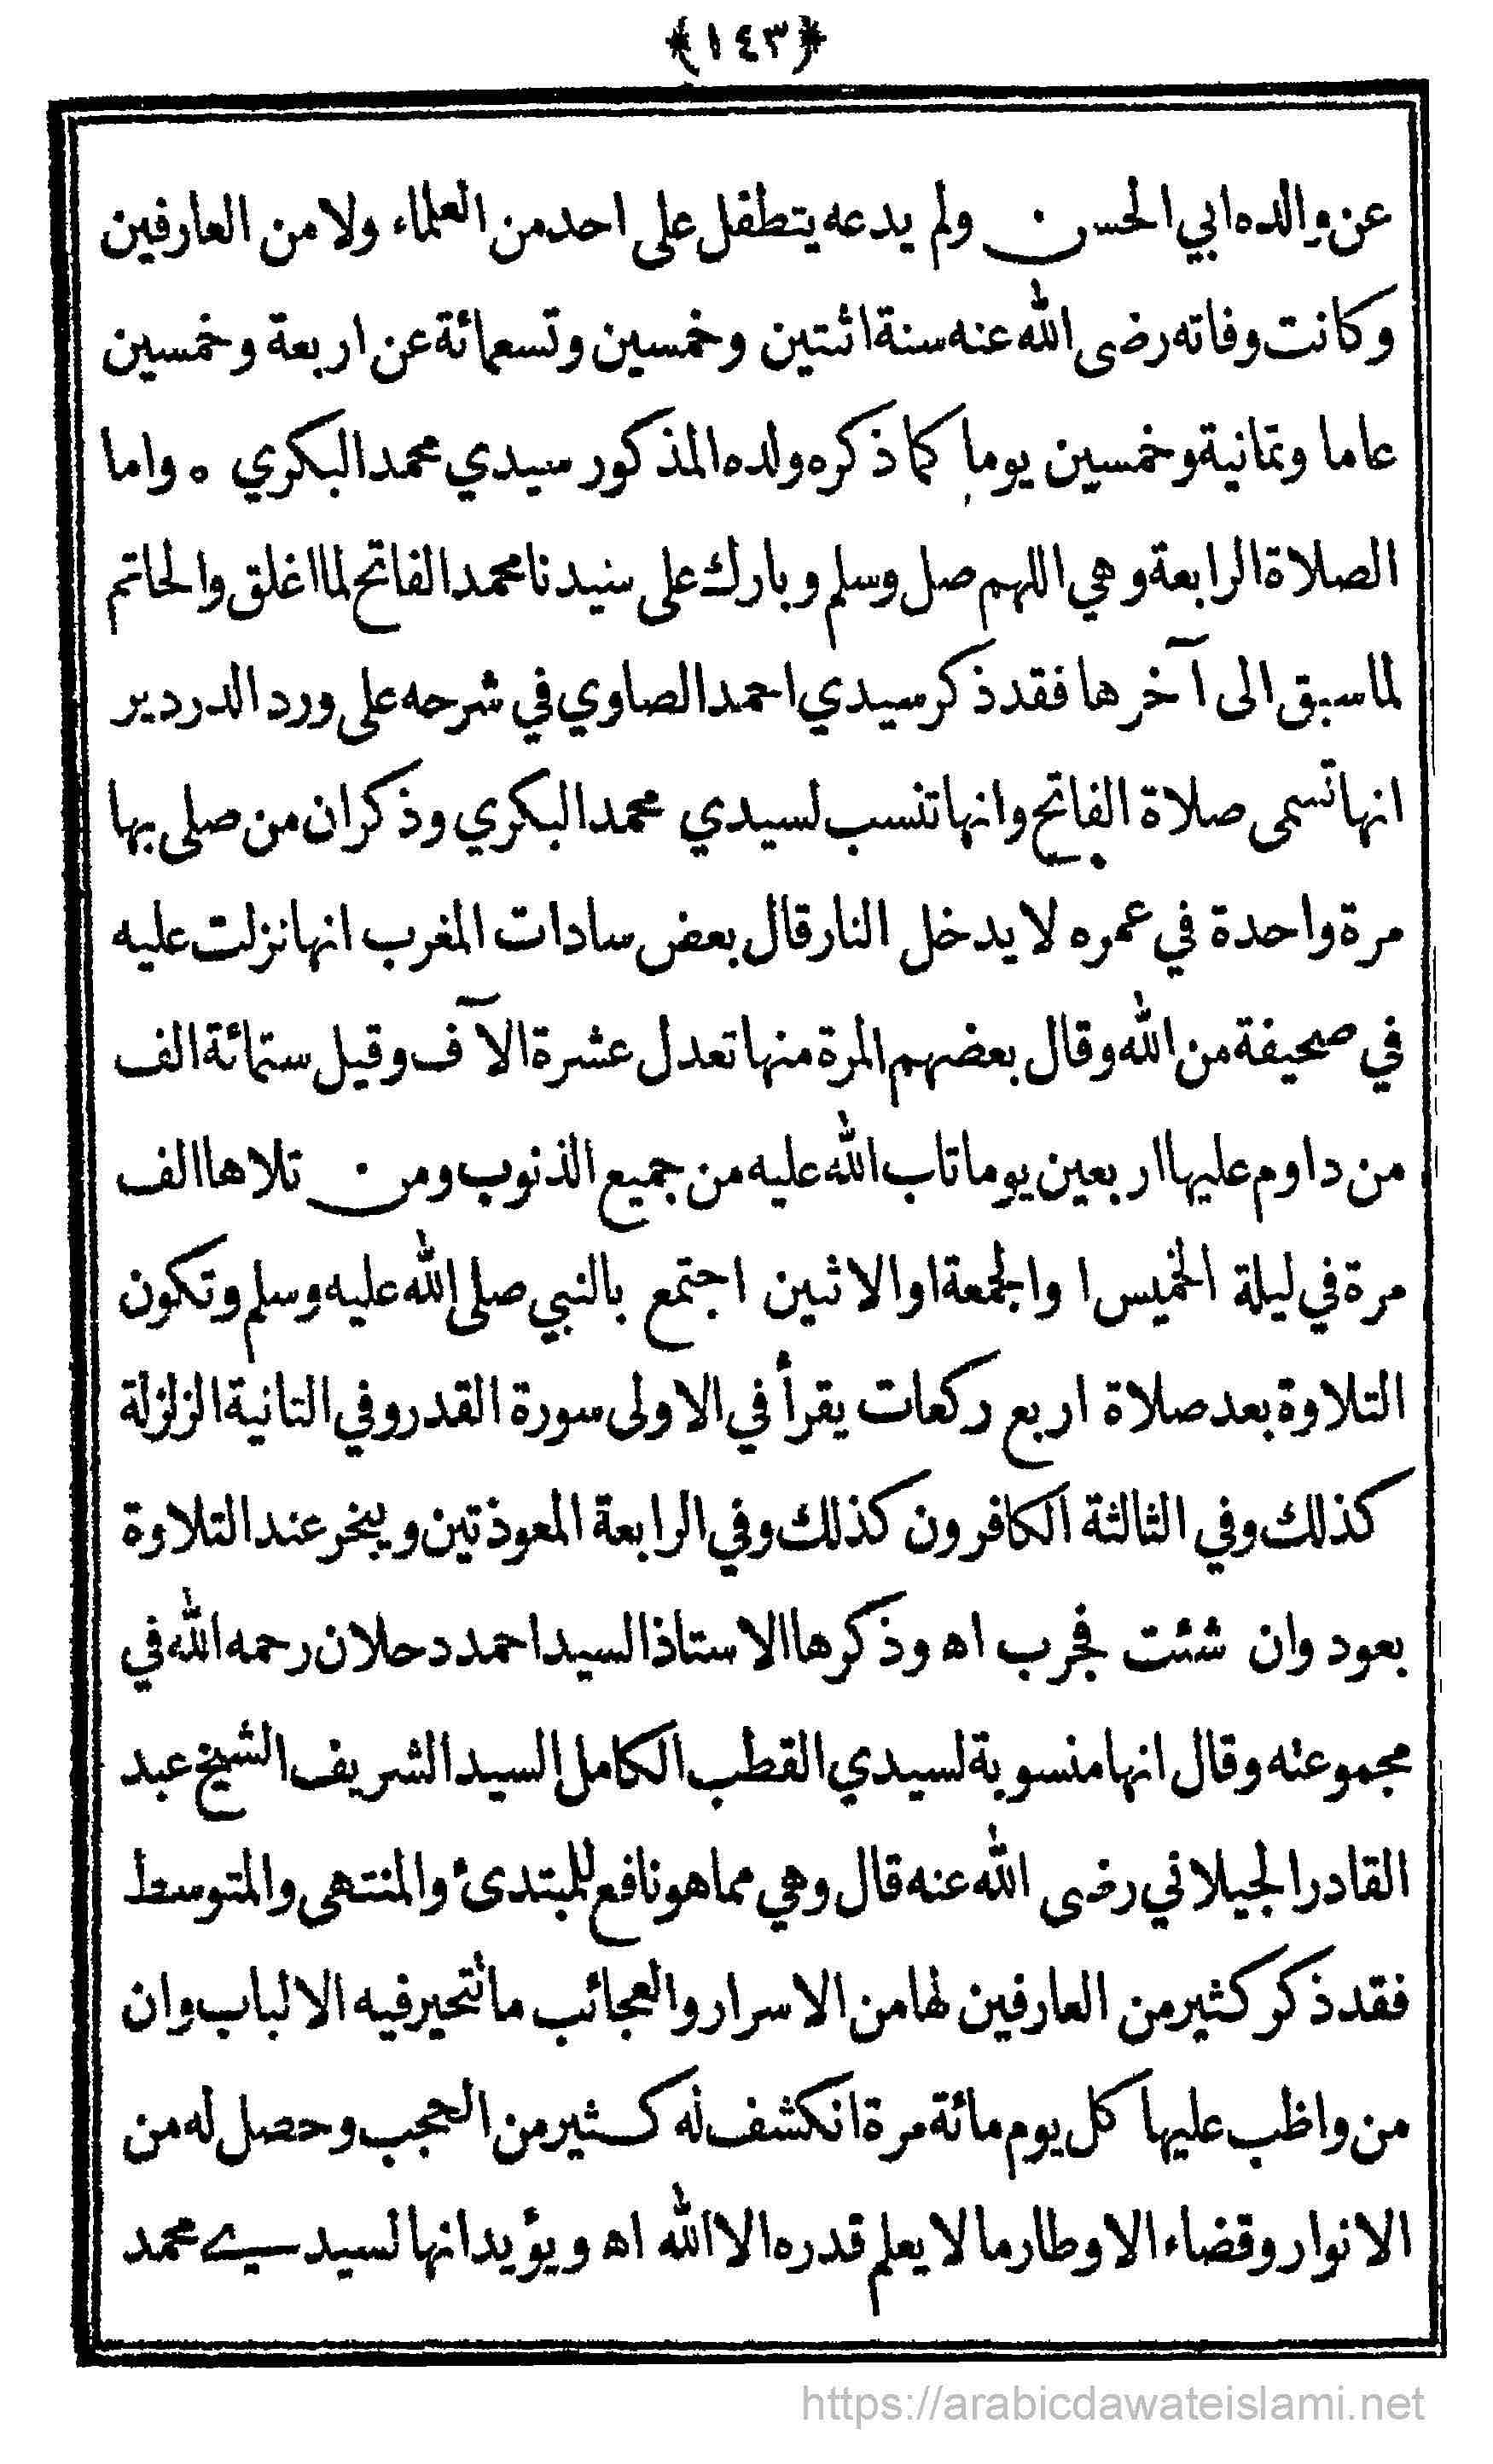 ﴿١٤٣﴾
عن والده ابي الحسن ولم يدعه يتطفل على احد من العلماء ولا من العارفين
وكانت وفاته رضى الله عنه سنة اثنتين وخمسين وتسعمائة عن اربعة وخمسين
عاما وثمانية وخمسين يوما كما ذكره ولده المذكور سيدي محمد البكري ۰ واما
الصلاة الرابعة وهي اللهم صل وسلم وبارك على سيدنا محمد الفاتح لما اغلق والخاتم
لما سبق الى آخرها فقد ذكر سيدي احمد الصاوي في شرحه على ورد الدردير
انها تسمى صلاة الفاتح وانها تنسب لسيدي محمد البكري وذكر ان من صلى بها
مرة واحدة في عمره لا يدخل النار قال بعض سادات المغرب انها نزلت عليه
في صحيفة من الله وقال بعضهم المرة منها تعدل عشرة الآف وقيل ستمائة الف
من داوم عليها اربعين يوما تاب الله عليه من جميع الذنوب ومن تلاها الف
مرة في ليلة الخميس او الجمعة او الاثنين اجتمع بالنبي صلى الله عليه وسلم وتكون
التلاوة بعد صلاة اربع ركعات يقرأ في الاولى سورة القدر وفي الثانية الزلزلة
كذلك وفي الثالثة الكافرون كذلك وفي الرابعة المعوذتين ويبخر عند التلاوة
بعود وان شئت فجرب اه وذكرها الاستاذ السيد احمد دحلان رحمه الله في
مجموعته وقال انها منسوبة لسيدي القطب الكامل السيد الشريف الشيخ عبد
القادر الجيلاني رضى الله عنه قال وهي مما هو نافع للمبتدئ والمنتهى والمتوسط
فقد ذكر كثير من العارفين لها من الاسرار والعجائب ما تتحير فيه الالباب وان
من واظب عليها كل يوم مائة مرة انكشف له كثير من الحجب وحصل له من
الانوار وقضاء الاوطار ما لا يعلم قدره الا الله اه ويؤيد انها لسيدي محمد
https://arabicdawateislami.net